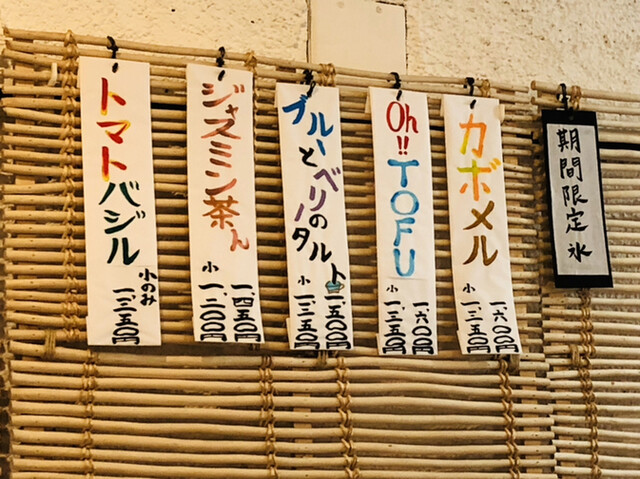 期間限定氷
カボメル
一六〇〇円
小 一三五〇円
Oh!!
TOFU
一六〇〇円
小 一三五〇円
ブルーと
ベリーの
タルト
一.五〇〇円
小 一.三五〇円
ジャスミン茶ん
一四五〇円
小
トマトバジル
小のみ